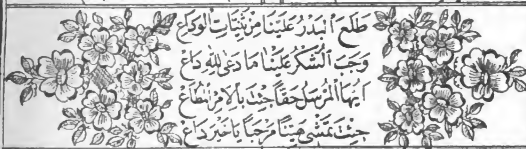 طَلَعَ الْبَدْرُ عَلَيْنَا مِنْ ثَنِيَّاتِ الْوَدَاعِ
وَجَبَ الشُّكْرُ عَلَيْنَا مَا دَعَى لِلّٰهِ دَاعْ
اَيُّهَا الْمُرْسَلُ حَقًّا جِئْتَ بِالْاَمْرِ مُطَاعْ
جِئْتَ تَمْشِى هَيِّنًا مَرْحَبًا يَا خَيْرَ دَاعْ